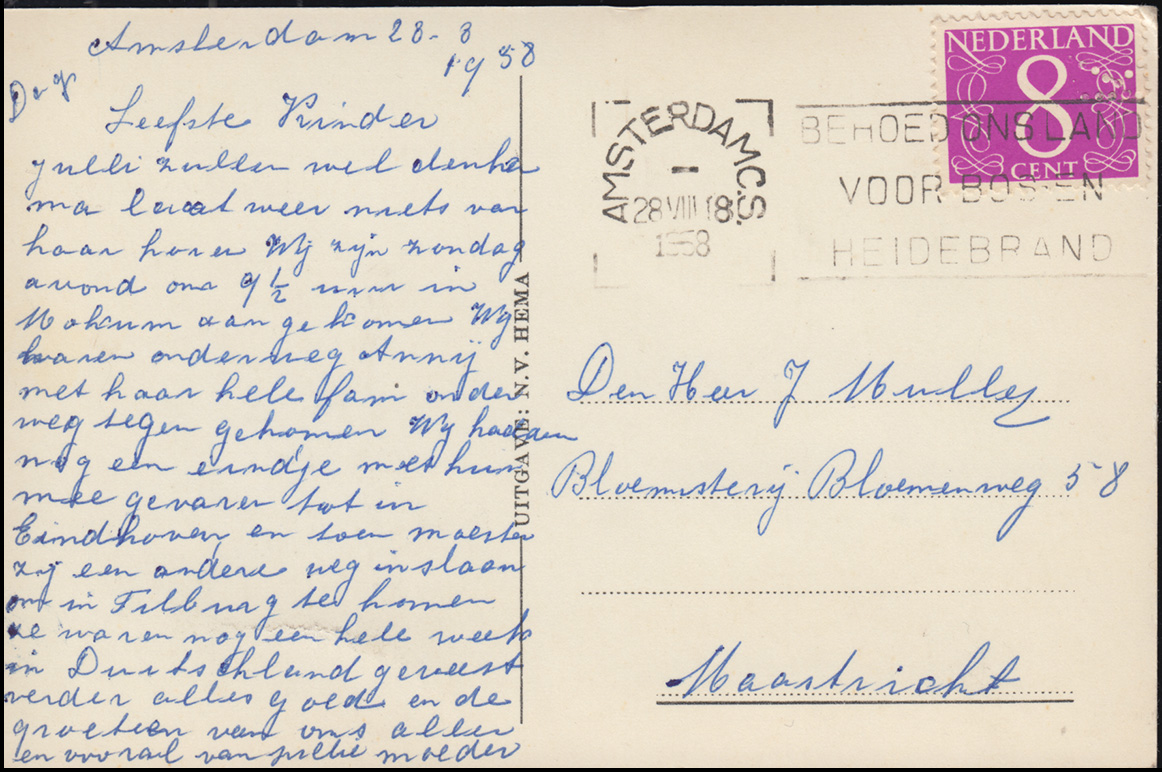 Amsterdam 28-8
1958
Dag
Leefste Kinder
julli zullen wel denken
ma laat weer niets van
haar horen Wij zijn zondag
avond om 9 1/2 uur in
Mokum aan gekomen Wij
waren onderweg Annij
met haar hele fam onder
weg tegen gekomen Wij hadden
nog een eindje met hun
mee gevaren tot in
Eindhoven en toen moesten
zij een andere weg inslaan
om in Tilburg te komen
ze waren nog een hele week
in Duitschland geweest
verder alles goed en de
groeteen van ons allen
en vooral van jullie moeder
UITGAVE: N.V. HEMA
NEDERLAND
8
CENT
AMSTERDAM C.S.
1
28 VIII 18
1958
BEHOED ONS LAND
VOOR BOS-EN
HEIDEBRAND
Den Heer J Mulley
Bloemisterij Bloemenweg 58
Maastricht